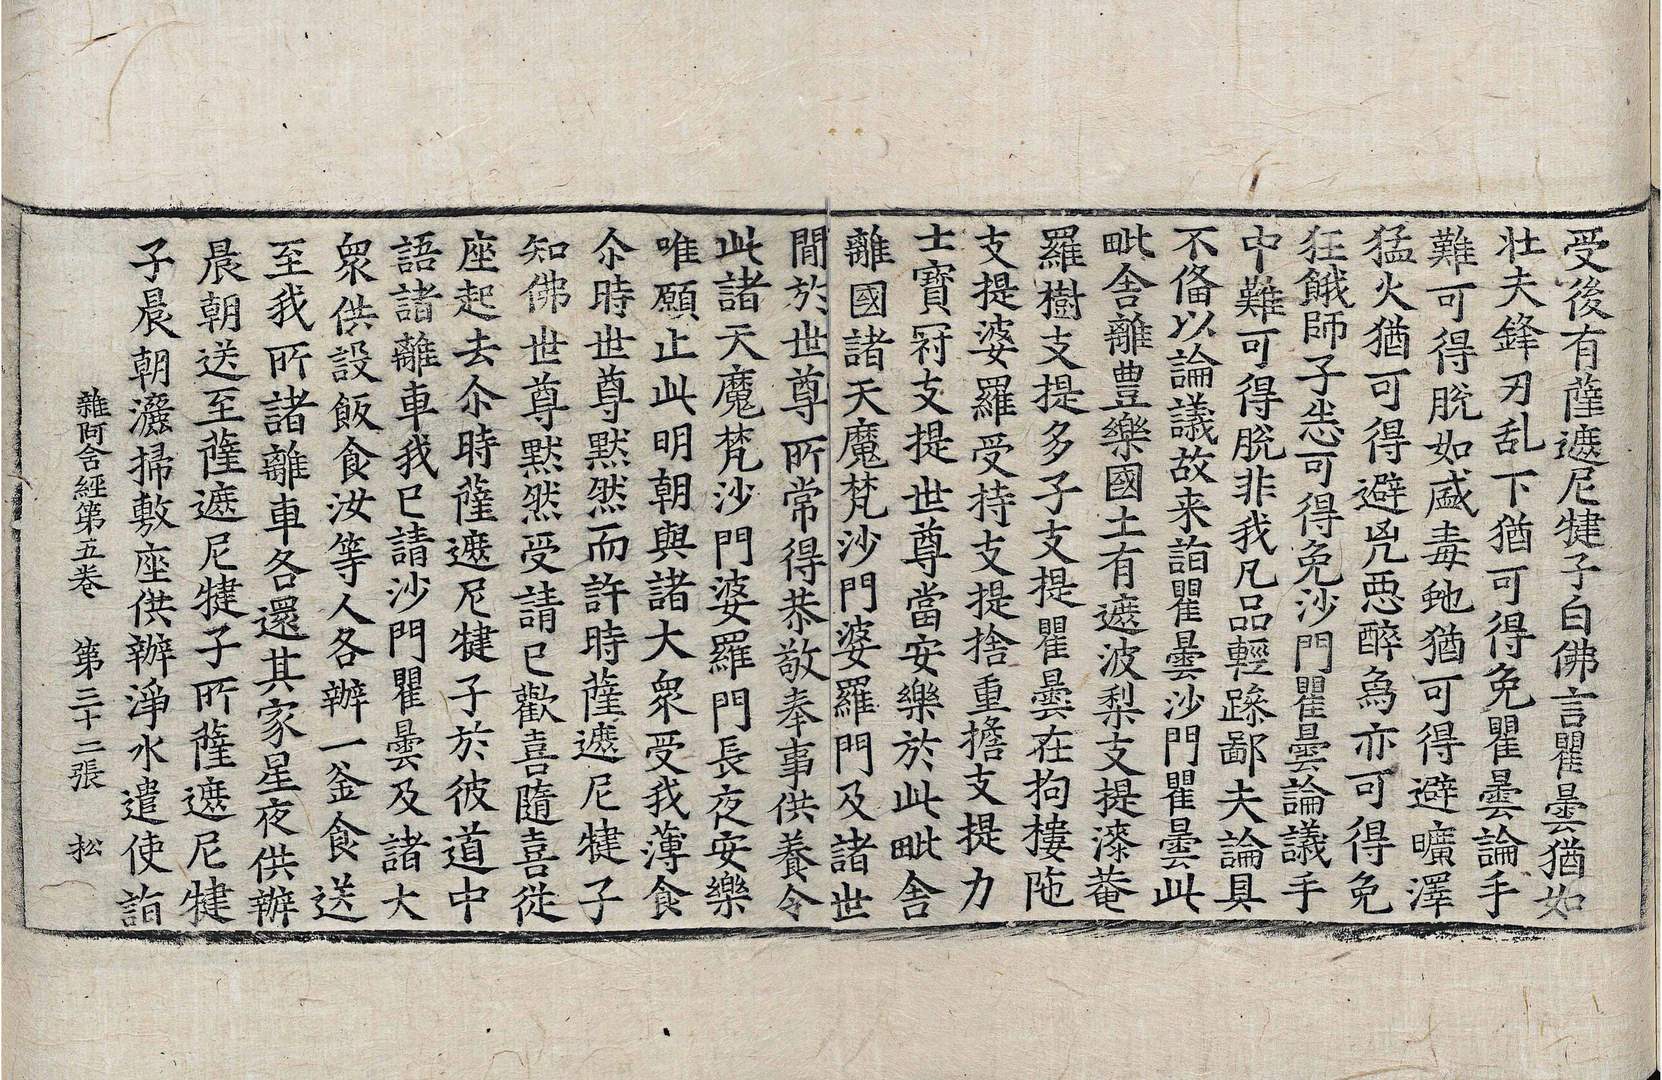 受後有薩遮尼犍子白佛言瞿曇猶如
壮夫鋒刃乱下猶可得免瞿曇論手
難可得脫如盛毒虵猶可得避曠澤
猛火猶可得避兇惡醉象亦可得免
狂餓師子悉可得免沙門瞿曇論議手
中難可得脫非我凡品輕躁鄙夫論具
不俻以論議故来詣瞿曇沙門瞿曇此
毗舍離豊樂國土有遮波梨支提漆菴
羅樹支提多子支提瞿曇在拘樓陁
支提婆羅受持支提捨重擔支提力
士寶冠支提世尊當安樂於此毗舍
離國諸天魔梵沙門婆羅門及諸世
間於世尊所常得恭敬奉事供養令
此諸天魔梵沙門婆羅門長夜安樂
唯願止此明朝與諸大衆受我薄食
尒時世尊默然而許時薩遮尼犍子
知佛世尊默然受請已歡喜隨喜從
座起去尒時薩遮尼犍子於彼道中
語諸離車我已請沙門瞿曇及諸大
衆供設飯食汝等人各辦一釜食送
至我所諸離車各還其家星夜供辦
晨朝送至薩遮尼犍子所薩遮尼犍
子晨朝灑掃敷座供辦淨水遣使詣
雜阿含經第五卷　第三十二張　松